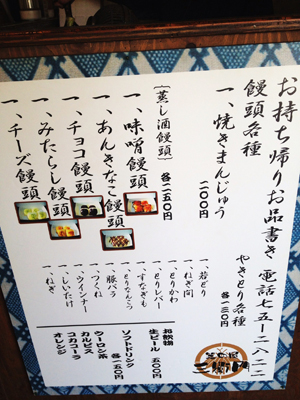 お持ち帰りお品書き 電話七五ー二八ー一一
饅頭各種
一、焼きまんじゅう
二〇〇円
(蒸し酒饅頭)
一、味噌饅頭
各一五〇円
一、あんきなこ饅頭
一、チョコ饅頭
一、みたらし饅頭
一、チーズ饅頭
やきとり各種
各一三〇円
一、若どり
一、ねぎ間
一、とりかわ
一、とりレバー
一、すなぎも
一、とりなんこつ
一、豚バラ
一、つくね
一、ウインナー
一、しいたけ
一、ねぎ
お飲物
生ビール 五〇〇円
ソフトドリンク
各一五〇円
ウーロン茶
カルピス
コカコーラ
オレンジ